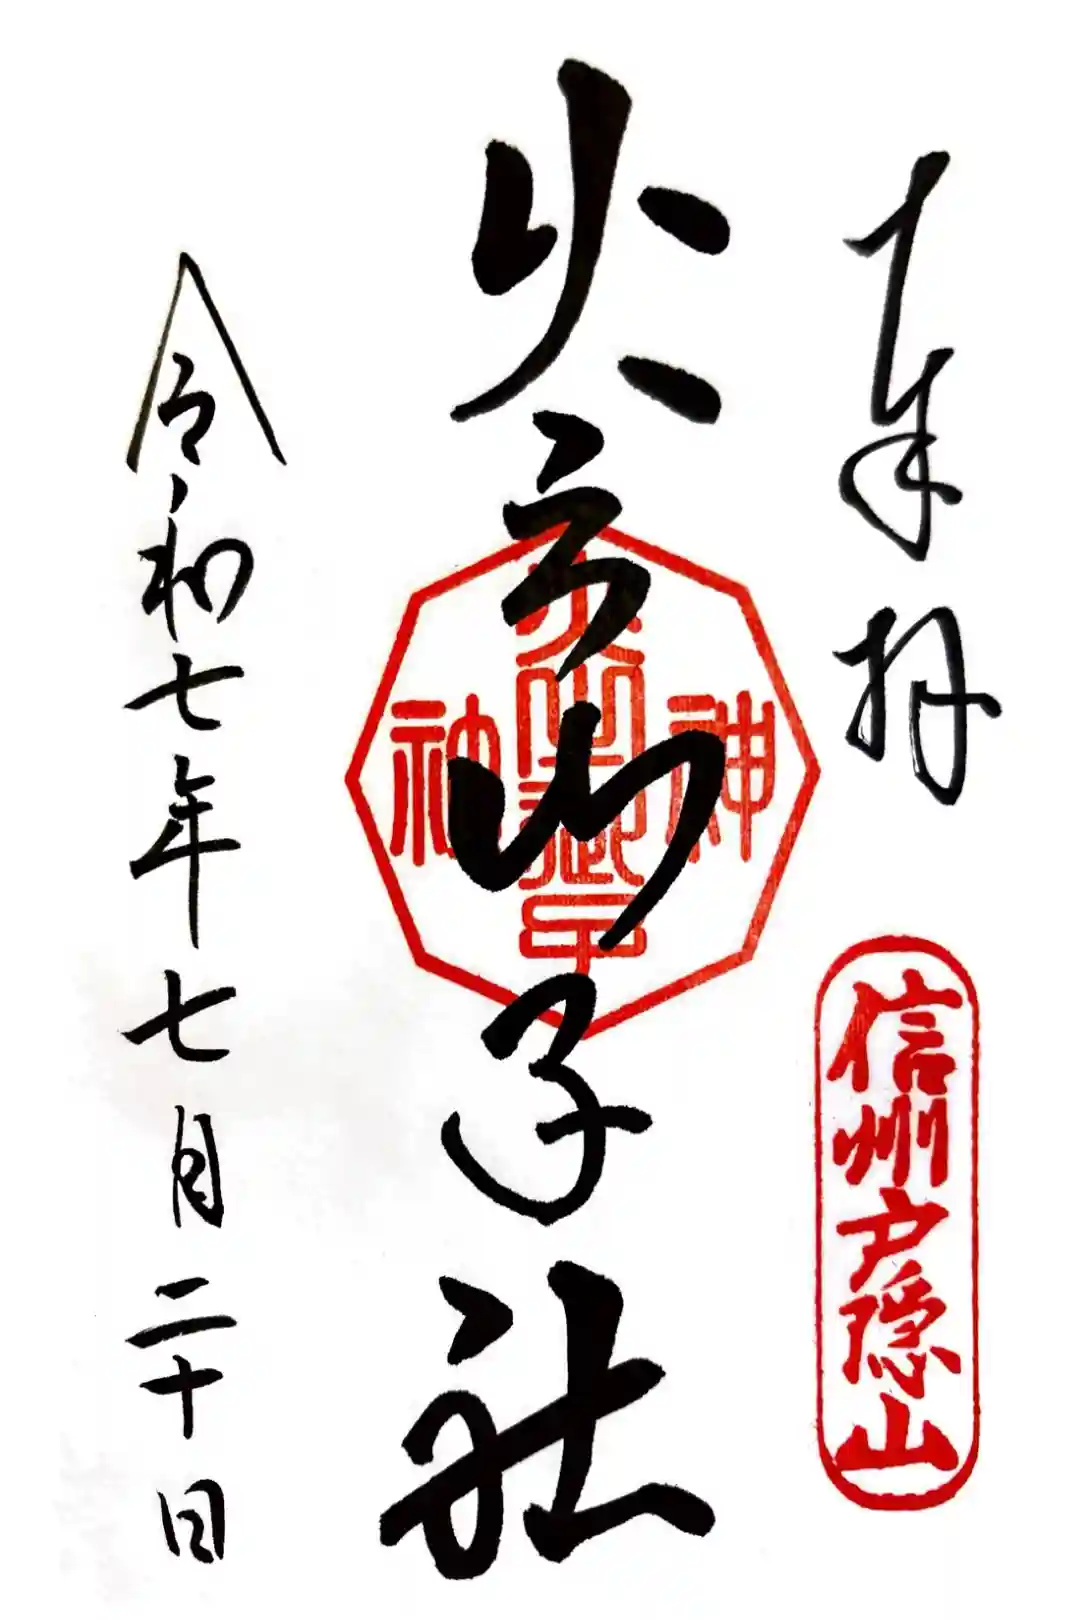 奉拝
信州戸隠山
火之御子社
令和七年七月二十日